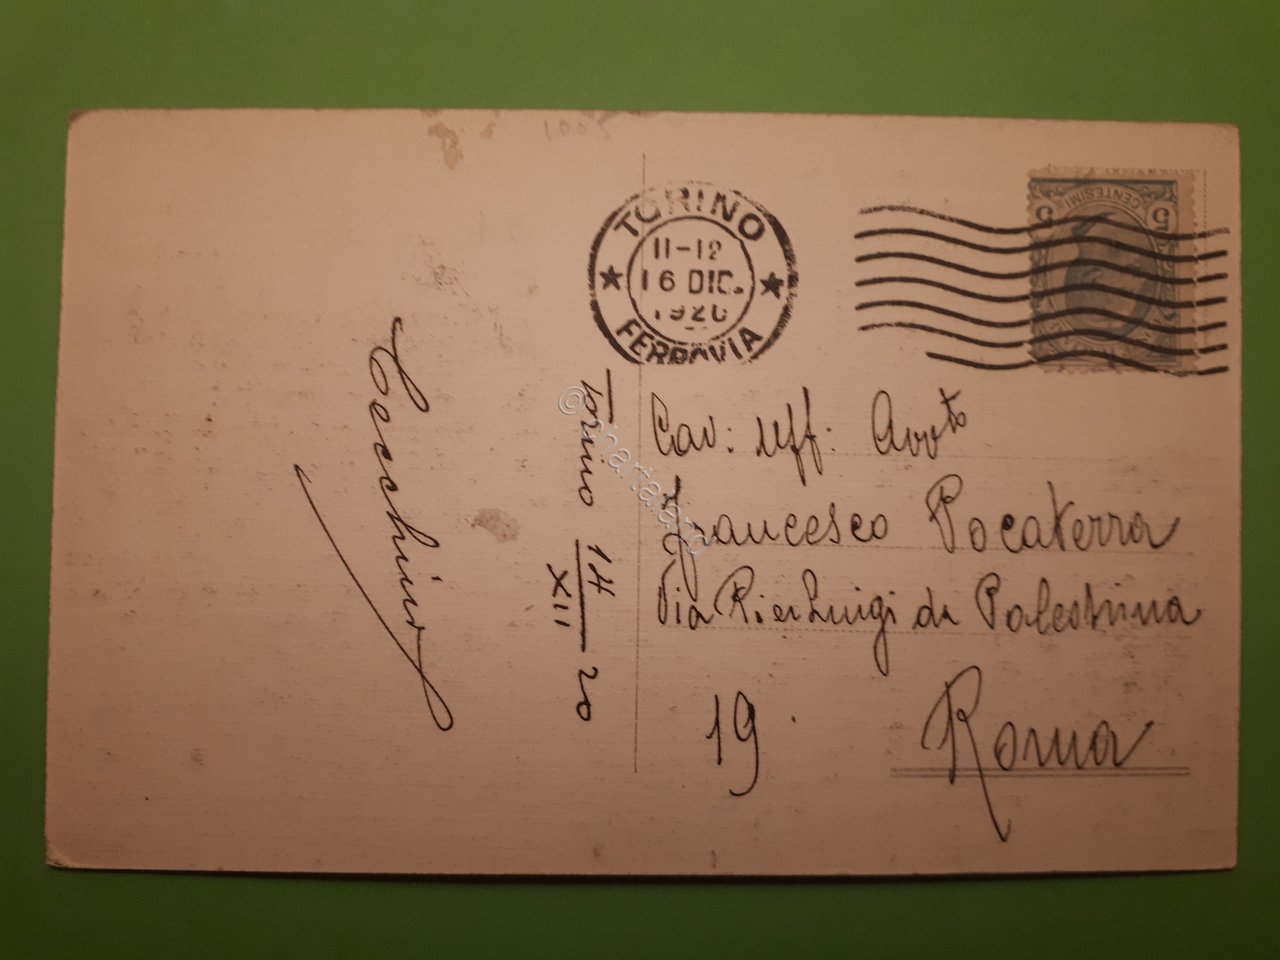 1005
TORINO
11-12
16 DIC.
1920
FERROVIA
5 CENTESIMI 5
Cav: Uff: Avv.to
Francesco Pocaterra
Via Pier Luigi da Palestrina
19. Roma
Torino 14/XII 20
Cecchino